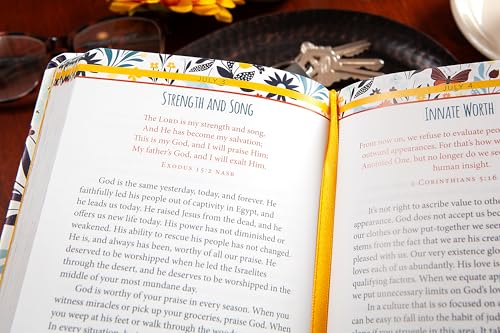 JULY 3
STRENGTH AND SONG
The LORD is my strength and song,
And He has become my salvation;
This is my God, and I will praise Him;
My father's God, and I will exalt Him.
EXODUS 15:2 NASB
God is the same yesterday, today, and forever. He
faithfully led his people out of captivity in Egypt, and
he leads us today. He raised Jesus from the dead, and he
offers us new life today. His power has not diminished or
weakened. His ability to rescue his people has not changed.
He is, and always has been, worthy of all our praise. He
deserved to be worshipped when he led the Israelites
through the desert, and he deserves to be worshipped in the
middle of your most mundane day.
God is worthy of your praise in every season. When you
witness miracles or pick up your groceries, praise God. When
you weep at his feet or walk through the
In every situation, b
JULY 4
INNATE WORTH
From now on, we refuse to evaluate peop
outward appearances. For that's how w
Anointed One, but no longer do we se
human insight.
2 CORINTHIANS 5:16
It's not right to ascribe value to othe
appearance. God does not accept us becau
our clothes or how put-together we seem
stems from the fact that we are his crea
pleased with us. Our very existence glor
loves each of us abundantly. His love is
qualifying factors. When we equate app
we put unnecessary limits on God's lov
In a culture that is so focused on
can be easy to fall into the habit of ju